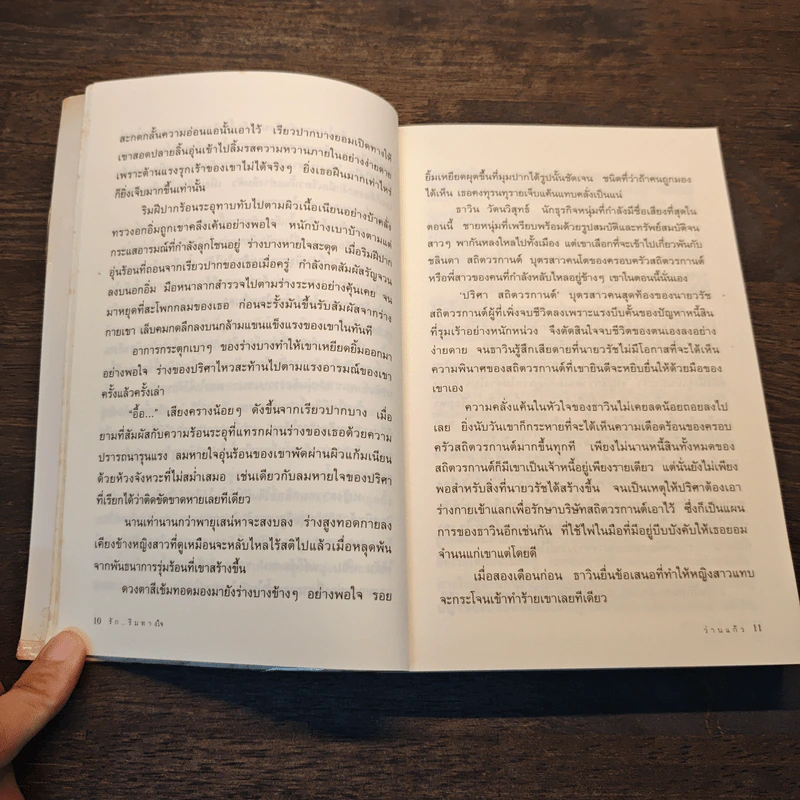 สะกดกลั้นความอ่อนแอนั้นเอาไว้ เรียวปากบางยอมเปิดทางให้
เขาสอดปลายลิ้นอุ่นเข้าไปลิ้มรสความหวานภายในอย่างง่ายดาย
เพราะด้านแรงรุกเร้าของเขาไม่ได้จริงๆ ยิ่งเธอฝืนมากเท่าไหร่
ก็ยิ่งเจ็บมากขึ้นเท่านั้น
ริมฝีปากร้อนระอุทาบทับไปตามผิวเนื้อเนียนอย่างบ้าคลั่ง
ทรวงอกอิ่มถูกเขาคลึงเค้นอย่างพอใจ หนักบ้างเบาบ้างตามแต่
กระแสอารมณ์ที่กำลังลุกโชนอยู่ ร่างบางหายใจสะดุด เมื่อริมฝีปาก
อุ่นร้อนที่ถอนจากเรียวปากของเธอเมื่อครู่ กำลังกดสัมผัสรัญจวน
ลงบนอกอิ่ม มือหนาลากสำรวจไปตามร่างระหงอย่างคุ้นเคย จน
มาหยุดที่สะโพกกลมของเธอ ก่อนจะรั้งมันขึ้นรับสัมผัสจากร่าง
กายเขา เล็บคมกดลึกลงบนกล้ามแขนแข็งแรงของเขาในทันที
อาการกระตุกเบาๆ ของร่างบางทำให้เขาเหยียดยิ้มออกมา
อย่างพอใจ ร่างของปริศาไหวสะท้านไปตามแรงอารมณ์ของเขา
ครั้งแล้วครั้งเล่า
"อื้อ..." เสียงครางน้อยๆ ดังขึ้นจากเรียวปากบาง เมื่อ
ยามที่สัมผัสกับความร้อนระอุที่แทรกผ่านร่างของเธอด้วยความ
ปรารถนารุนแรง ลมหายใจอุ่นร้อนของเขาพัดผ่านผิวแก้มเนียน
ด้วยห้วงจังหวะที่ไม่สม่ำเสมอ เช่นเดียวกับลมหายใจของปริศา
ที่เรียกได้ว่าติดขัดขาดหายเลยทีเดียว
นานเท่านานกว่าพายุเสน่หาจะสงบลง ร่างสูงทอดกายลง
เคียงข้างหญิงสาวที่ดูเหมือนจะหลับใหลไร้สติไปแล้วเมื่อหลุดพ้น
จากพันธนาการรุ่มร้อนที่เขาสร้างขึ้น
ดวงตาสีเข้มทอดมองมายังร่างบางข้างๆ อย่างพอใจ รอย
10 รัก...ริมทางใจ
ยิ้มเหยียดผุดขึ้นที่มุมปากได้รูปนั้นชัดเจน ชนิดที่ว่าถ้าคนถูกมอง
ได้เห็น เธอคงทุรนทุรายเจ็บแค้นแทบคลั่งเป็นแน่
ธาวิน วัตนวิสุทธ์ นักธุรกิจหนุ่มที่กำลังมีชื่อเสียงที่สุดใน
ตอนนี้ ชายหนุ่มที่เพียบพร้อมด้วยรูปสมบัติและทรัพย์สมบัติจน
สาวๆ พากันหลงใหลไปทั้งเมือง แต่เขาเลือกที่จะเข้าไปเกี่ยวพันกับ
ชลินดา สถิตวรกานต์ บุตรสาวคนโตของครอบครัวสถิตวรกานต์
หรือพี่สาวของคนที่กำลังหลับใหลอยู่ข้างๆ เขาในตอนนี้นั่นเอง
'ปริศา สถิตวรกานต์' บุตรสาวคนสุดท้องของนายวรัช
สถิตวรกานต์ผู้ที่เพิ่งจบชีวิตลงเพราะแรงบีบคั้นของปัญหาหนี้สิน
ที่รุมเร้าอย่างหนักหน่วง จึงตัดสินใจจบชีวิตของตนเองลงอย่าง
ง่ายดาย จนธาวินรู้สึกเสียดายที่นายวรัชไม่มีโอกาสที่จะได้เห็น
ความพินาศของสถิตวรกานต์ที่เขายินดีจะหยิบยื่นให้ด้วยมือของ
เขาเอง
ความคลั่งแค้นในหัวใจของธาวินไม่เคยลดน้อยถอยลงไป
เลย ยิ่งนับวันเขาก็กระหายที่จะได้เห็นความเดือดร้อนของครอบ
ครัวสถิตวรกานต์มากขึ้นทุกที เพียงไม่นานหนี้สินทั้งหมดของ
สถิตวรกานต์ก็มีเขาเป็นเจ้าหนี้อยู่เพียงรายเดียว แต่นั่นยังไม่เพียง
พอสำหรับสิ่งที่นายวรัชได้สร้างขึ้น จนเป็นเหตุให้ปริศาต้องเอา
ร่างกายเข้าแลกเพื่อรักษาบริษัทสถิตวรกานต์เอาไว้ ซึ่งก็เป็นแผน
การของธาวินอีกเช่นกัน ที่ใช้ไพ่ในมือที่มีอยู่บีบบังคับให้เธอยอม
จำนนแก่เขาแต่โดยดี
เมื่อสองเดือนก่อน ธาวินยื่นข้อเสนอที่ทำให้หญิงสาวแทบ
จะกระโจนเข้าทำร้ายเขาเลยทีเดียว
ว่านแก้ว 11